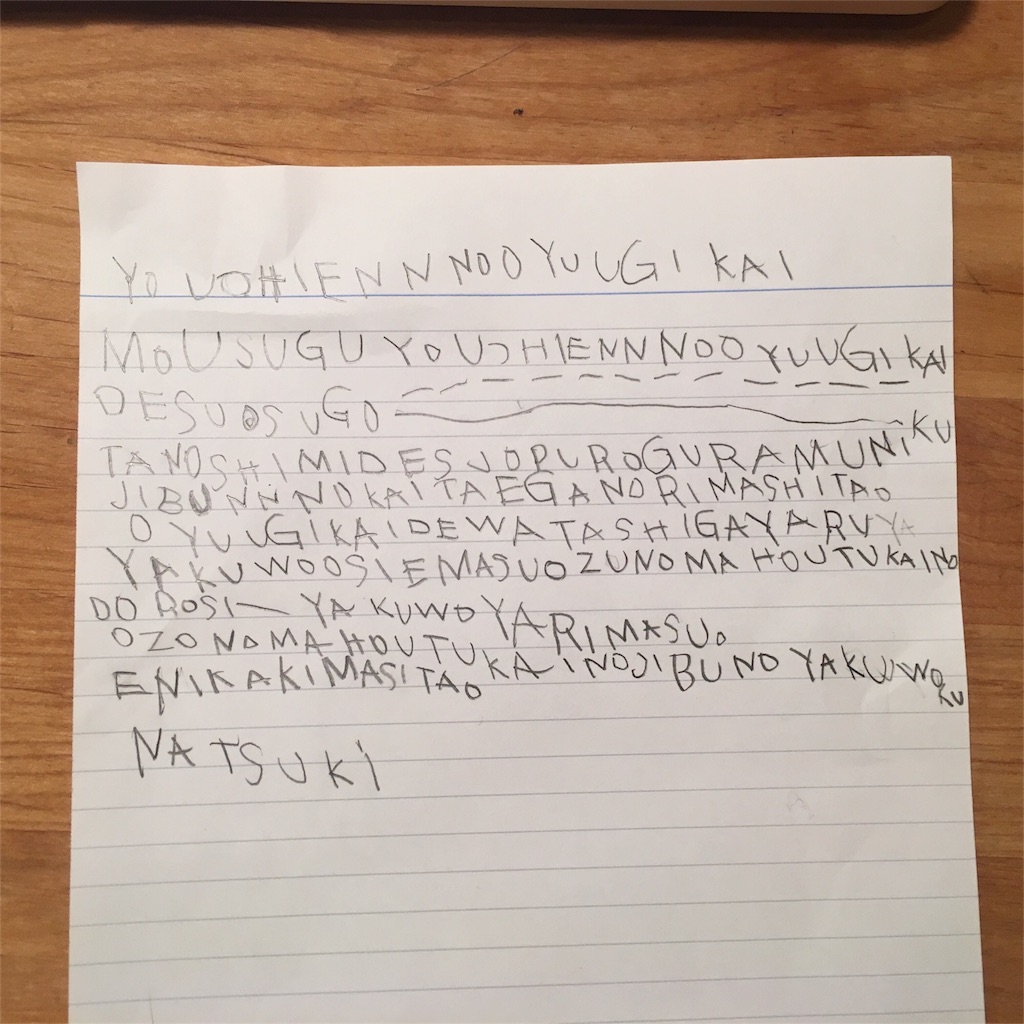 YOUCHIENNNOOYUUGIKAI
MOUSUGUYOUCHIENNNOOYUUGIKAI
DESUoSUGO〰KU
TANOSHIMIDESUoPUROGURAMUNI
JIBUNNNOKAITAEGANORIMASHITAo
OYUUGIKAIDEWATASHIGAYARUYA
YAKUWOOSIEMASUoOZUNOMAHOUTUKAINO
DOROSIーYAKUWOYARIMASUo
OZONOMAHOUTUKAINOJIBUNOYAKUWOKU
ENIKAKIMASITAo
NATSUKI